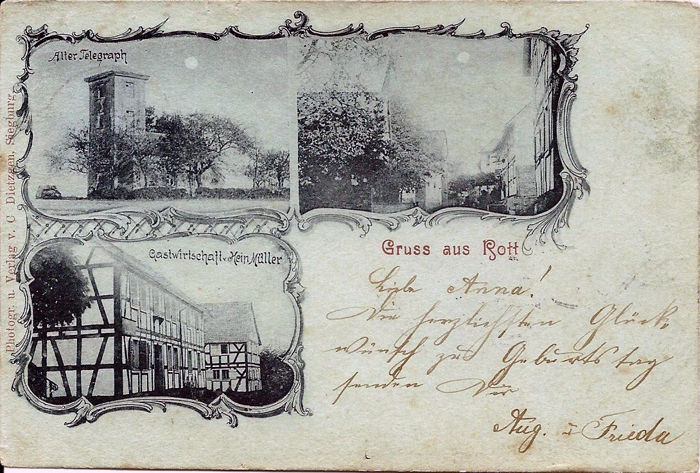 Alter Telegraph
Gastwirtschaft v. Hein Müller
Photogr. u. Verlag v. C Dietzgen, Siegburg.
Gruss aus Rott
Liebe Anna!
Die herzlichsten Glück
wünsch zu Geburtstag
senden Dir
Aug. u Frieda